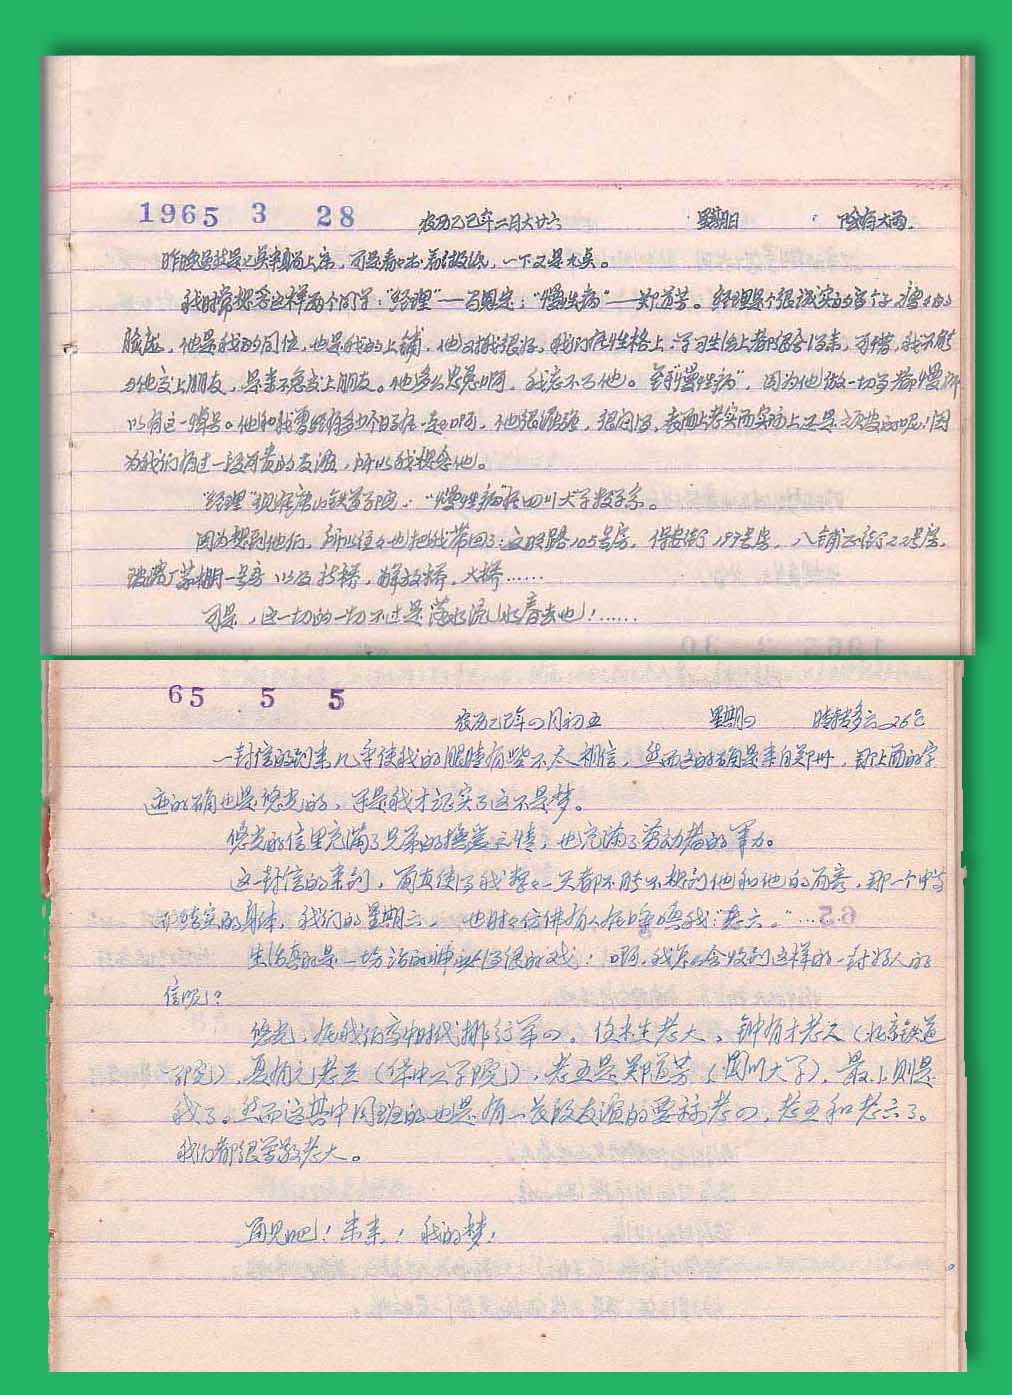 1965 3 28
农历乙巳年二月大廿六 星期日 阴有大雨.
昨晚 是 上床，可是看 书，看 报纸，一下又是九点。
我时常想念这样两个同学："经理"—— ；"慢性病"——郑道芳。经理是个很诚实的高个子，瘦瘦的
脸庞，他是我的同位，也是我的上铺，他对我很好，我们在性格上，学习生活上都很合得来，可惜，我不能
与他交上朋友，是来不及交上朋友。他多么 啊，我忘不了他。至于"慢性病"，因为他做一切事都慢，所
以有这一绰号。他和我曾经有多少个日子在一起啊，他很 ，很 ，表面上老实而实际上还是 的呢！因
为我们有过一段可贵的友谊，所以我想念他。
"经理"现在唐山铁道学院；"慢性病"在四川大学数学系。
因为想到他们，所以往往也把我带回了： 路105号房，保安街197号房，八铺正街22号房，
玻璃厂茅棚一号房 以及 桥，解放桥，大桥……
可是，这一切的一切不过是落水流水春去也！……
65 5 5
农历乙巳年四月初五 星期四 晴转多云 26℃
一封信的到来几乎使我的眼睛有些不太相信，然而这的确是来自郑州，那上面的字
迹的确也是悠光的，于是我才证实了这不是梦。
悠光的信里充满了兄弟的 之情，也充满了劳动者的 力。
这一封信的来到，简直使得我整整一天都不能不想到他和他的面容，那一个中等
而结实的身体，我们的星期六。 也时时仿佛有人在呼唤我："老六。"…
生活真的是一场 的神秘得很的戏！啊，我怎么会收到这样的一封好人的
信呢？
悠光，在我们高中时代排行第四。任 生老大，钟有才老二（北京铁道
学院），夏有元老三（华中工学院），老五是郑道芳（四川大学），最上则是
我了。然而这其中同班的也是有一段 友谊的要称老四，老五和老六了。
我们都很尊敬老大。
再见吧！未来！我的梦！